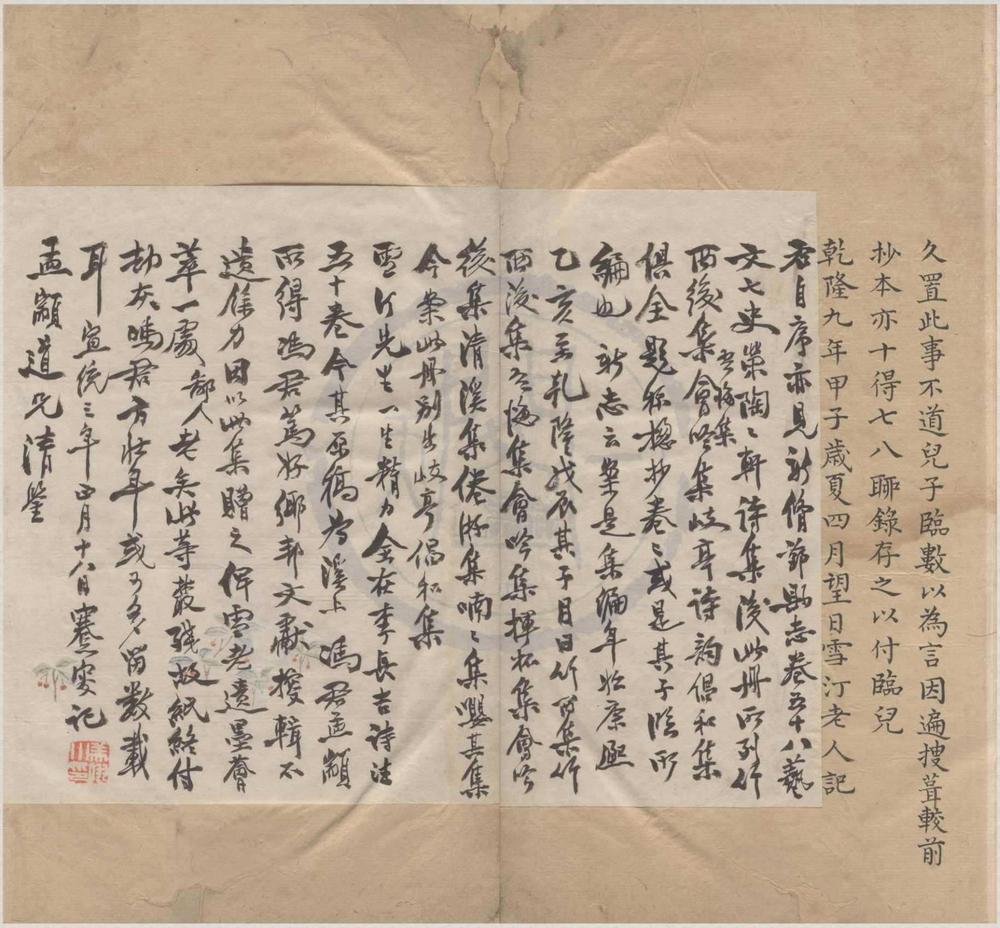 久置此事不道兒子臨數以為言因遍搜葺較前
抄本亦十得七八聊錄存之以付臨兒
乾隆九年甲子歲夏四月望日雪汀老人記
右自序亦見新修鄞縣志卷五十八藝
文七史榮陶陶軒詩集後此冊所列竹
西後集老悔集會吟集岐亭詩韵倡和集
俱全題称摠抄卷卷或是其子臨所
編也新志云案是集編年始康熙
乙亥至乾隆戊辰其子目曰竹西集竹
西後集老悔集會吟集揮杯集會吟
後集清溪集倦游集喃喃集嘅其集
今案此冊別出岐亭倡和集
雪汀先生一生精力全在李長吉詩注
五十卷今其原稿為溪上馮君孟顓
所得馮君篤好鄉邦文獻搜輯不
遺餘力因以此集贈之俾雪老遺墨薈
萃一處鄙人老矣此等叢殘故紙終付
劫灰馮君方壯年或可多留數載
耳宣統三年正月十八日蹇叟記
孟顓道兄清鑒